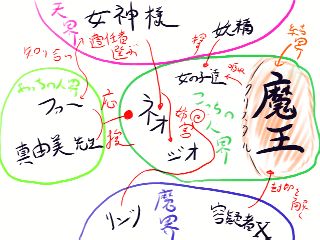 天界
女神様
適任者
選ぶ
知り合い
妖精
探す
女の子達
結界
あっちの人界
ファー
真由美先生
応援
ネオ
ジオ
こっちの人界
クリスタル
魔王
封印を解く
魔界
リンツ
容疑者X